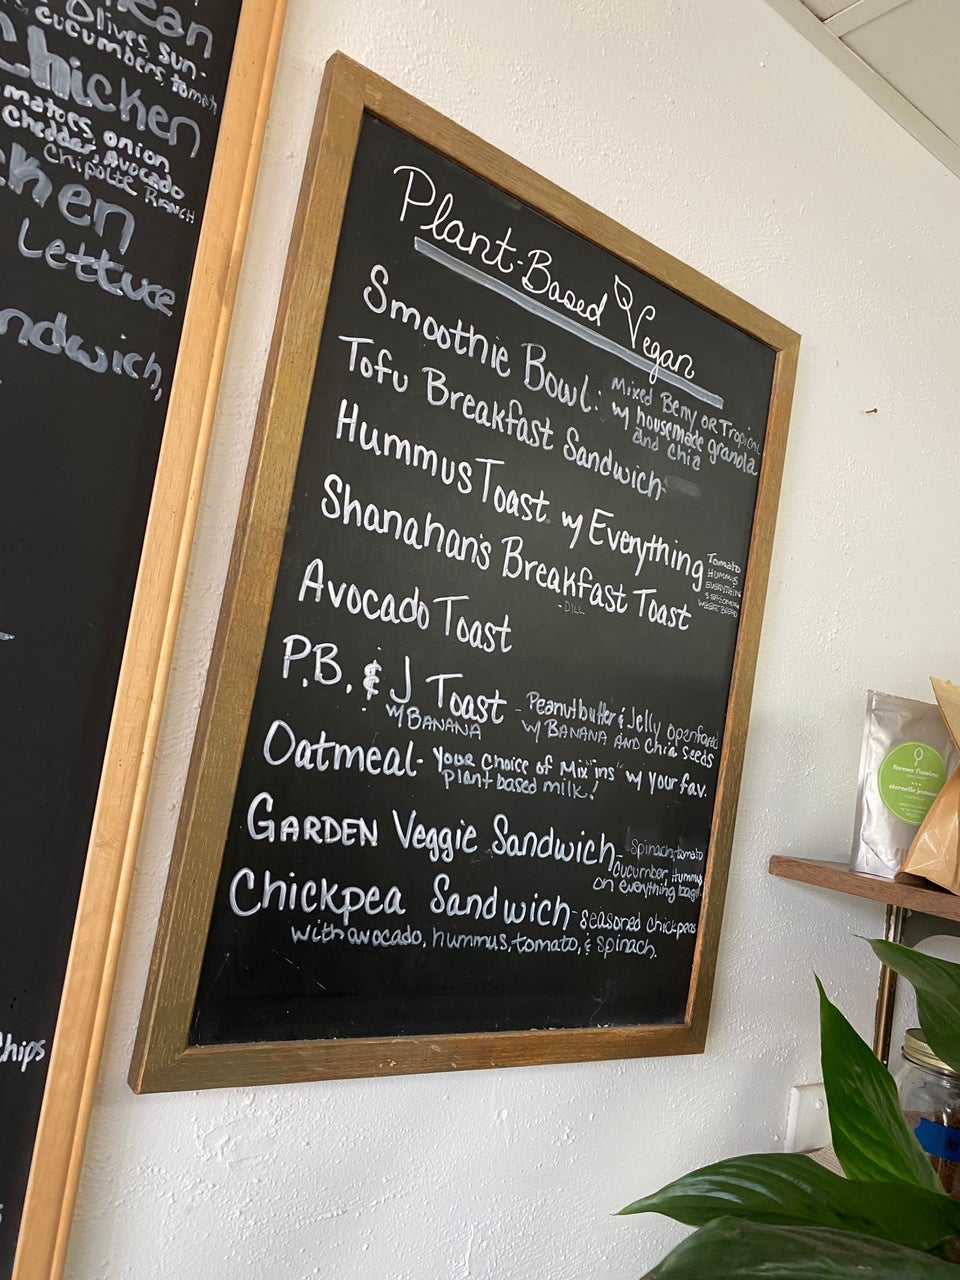 Olives, sun-
cucumbers, tomat
Chicken
matoes, onion
Cheddar, Avocado
Chipolte RANCH
Lettuce
ndwich,
Chips
Plant-Based Vegan
Smoothie Bowl: Mixed Berry or Tropical
w/ housemade granola
and chia
Tofu Breakfast Sandwich
Hummus Toast w/ Everything
Tomato
HUMMUS
EVERYTHING
SEASONING
WHEAT BREAD
Shanahan's Breakfast Toast
-DILL
Avocado Toast
P.B. & J Toast - Peanutbutter & Jelly openfaced
w/ BANANA w/ BANANA AND Chia seeds
Oatmeal- Your Choice of Mix "ins" w/ your fav.
plant based milk!
GARDEN Veggie Sandwich- spinach, tomato
cucumber, Hummus
on everything bagel.
Chickpea Sandwich- seasoned chickpeas
with avocado, hummus, tomato, & spinach.
forever flawless
éternelle jeunesse